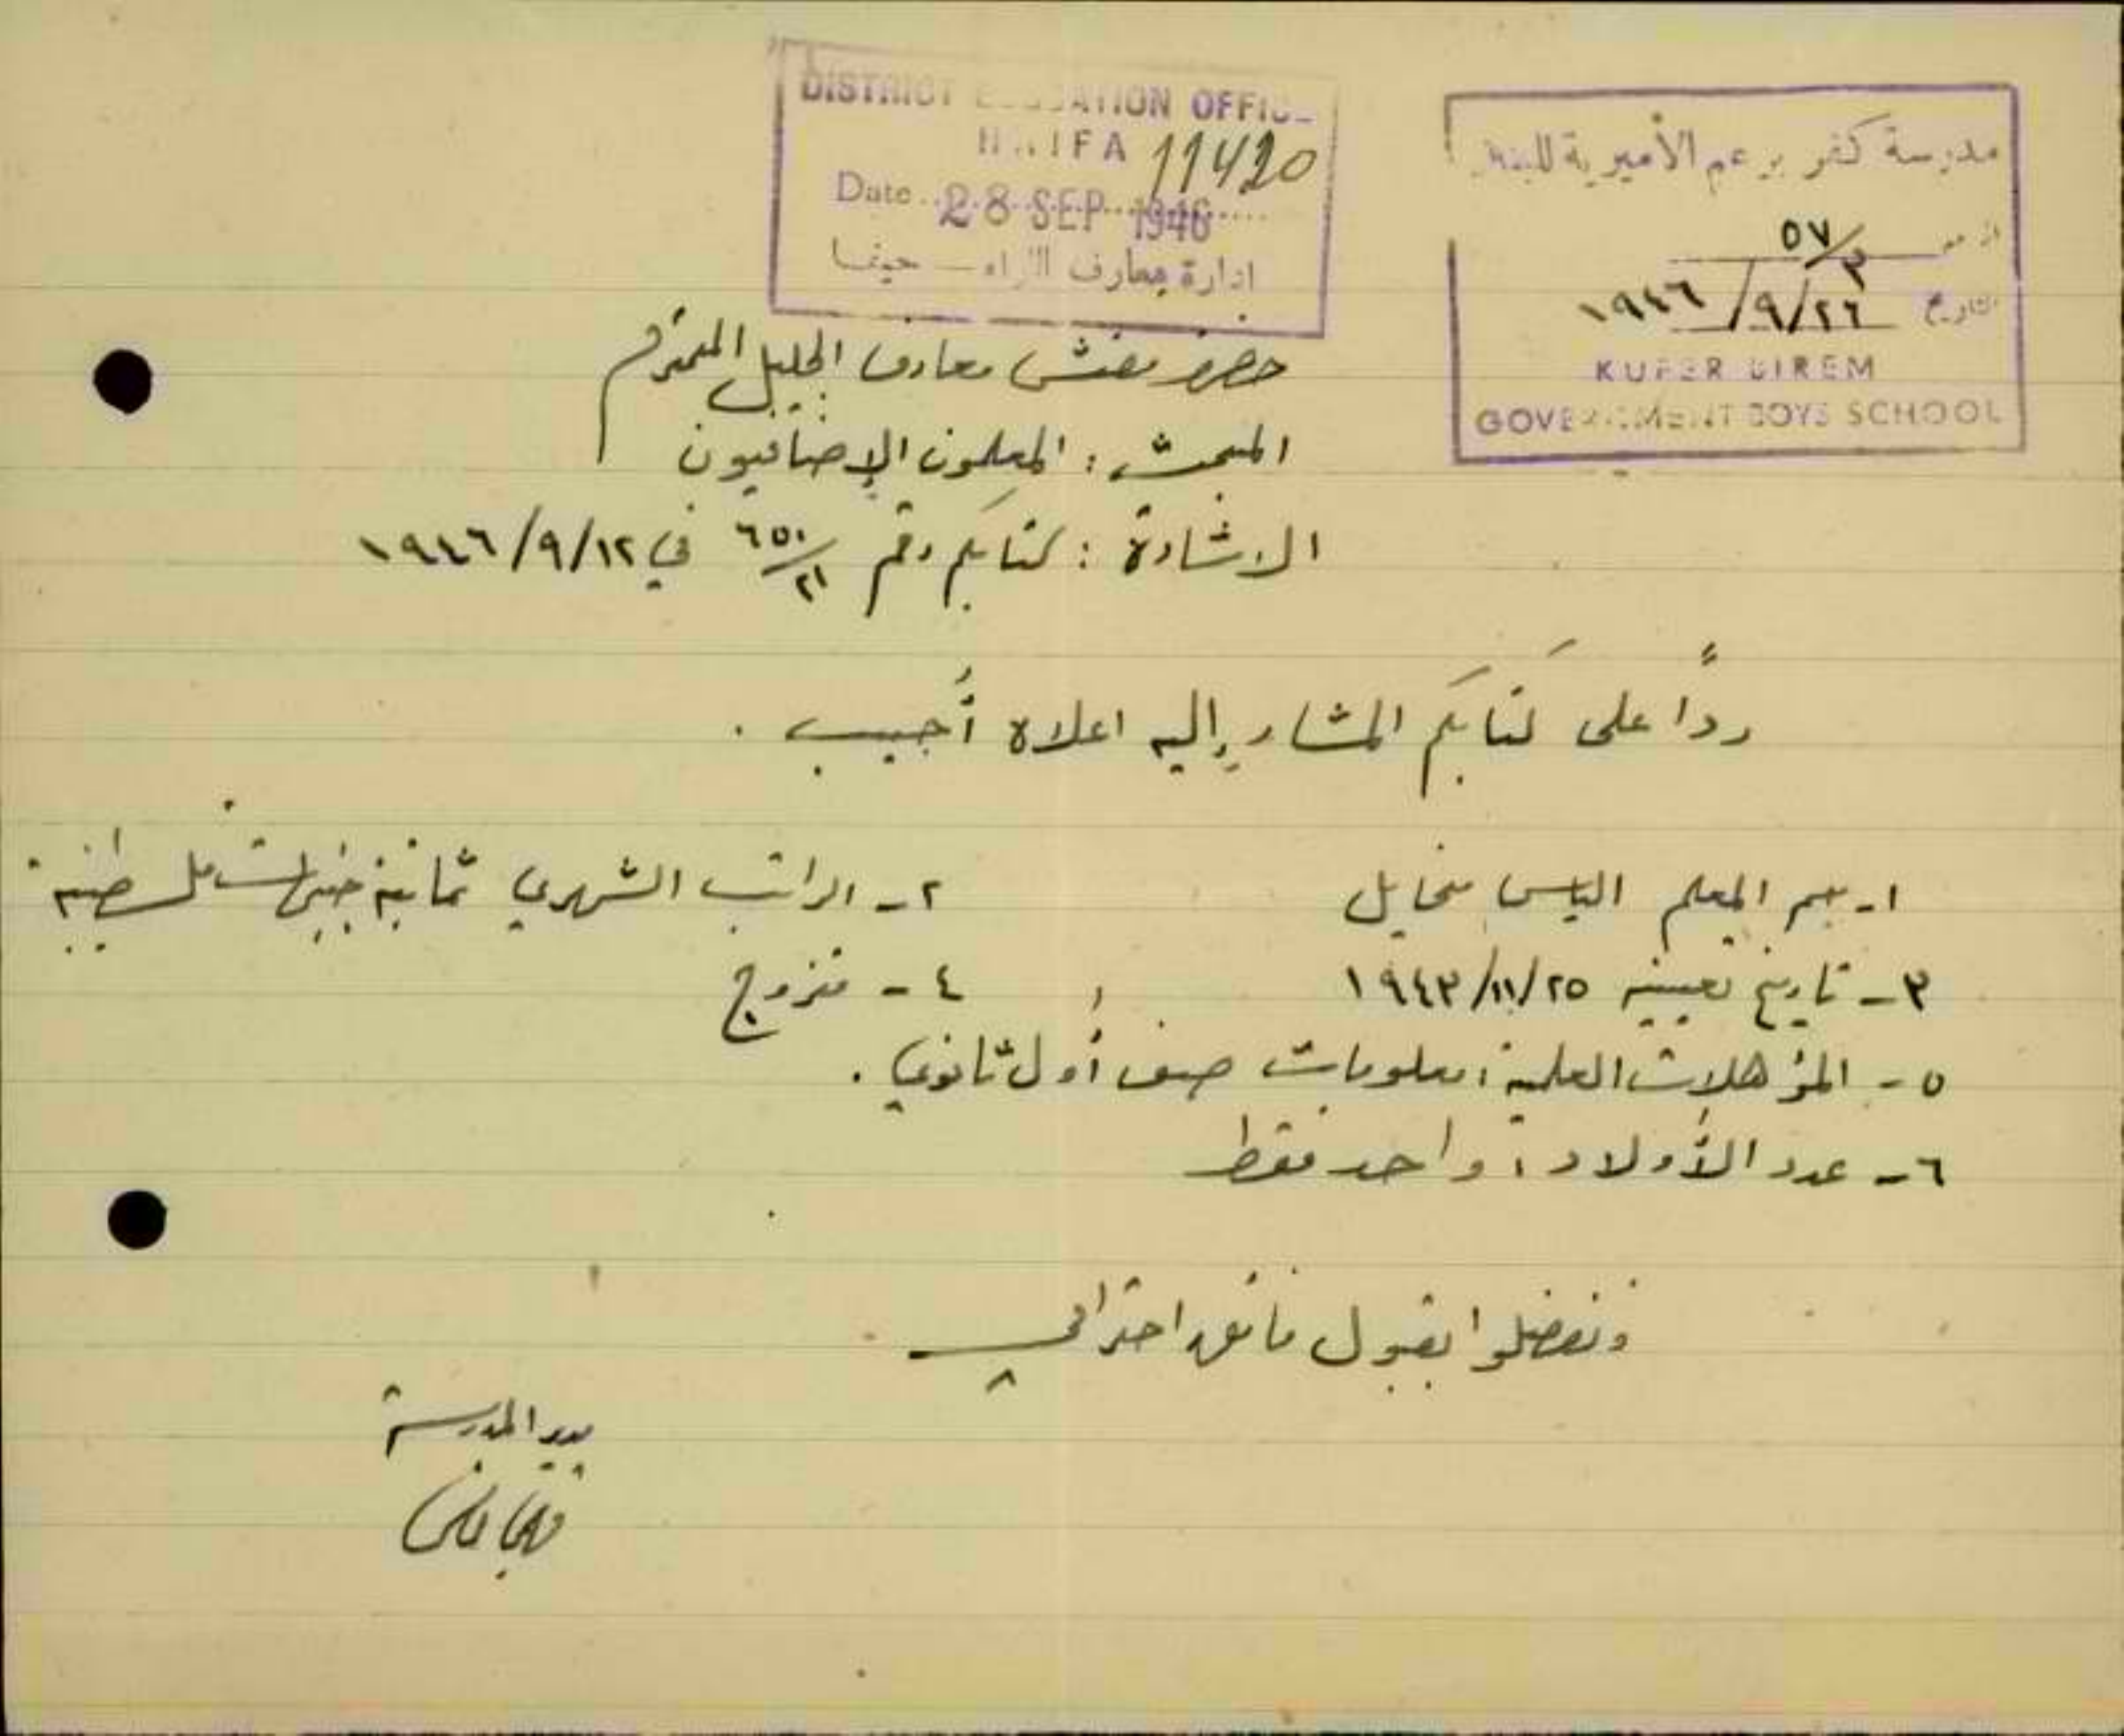 DISTRICT EDUCATION OFFICE
HAIFA 11420
Date 28 SEP 1946
ادارة معارف اللواء — حيفا
مدرسة كفر برعم الأميرية للبنين
٥٧/٣
التاريخ ٢٦/٩/١٩٤٦
KUFER BIREM
GOVERNMENT BOYS SCHOOL
حضرة مفتش معارف الجليل المحترم
المبحث : المعلمون الإضافيون
الاشارة : كتابكم رقم ٦٥٠/٢١ في ١٢/٩/١٩٤٦
رداً على كتابكم المشار إليه اعلاه أُجيب .
١- اسم المعلم الياس مخايل
٢- الراتب الشهري ثمانية جنيهات فلسطينية .
٣- تاريخ تعيينه ٢٥/١١/١٩٤٣
٤- متزوج
٥- المؤهلات العلمية : معلومات صف أول ثانوي .
٦- عدد الأولاد : واحد فقط
وتفضلوا بقبول فائق احترامي
مدير المدرسة